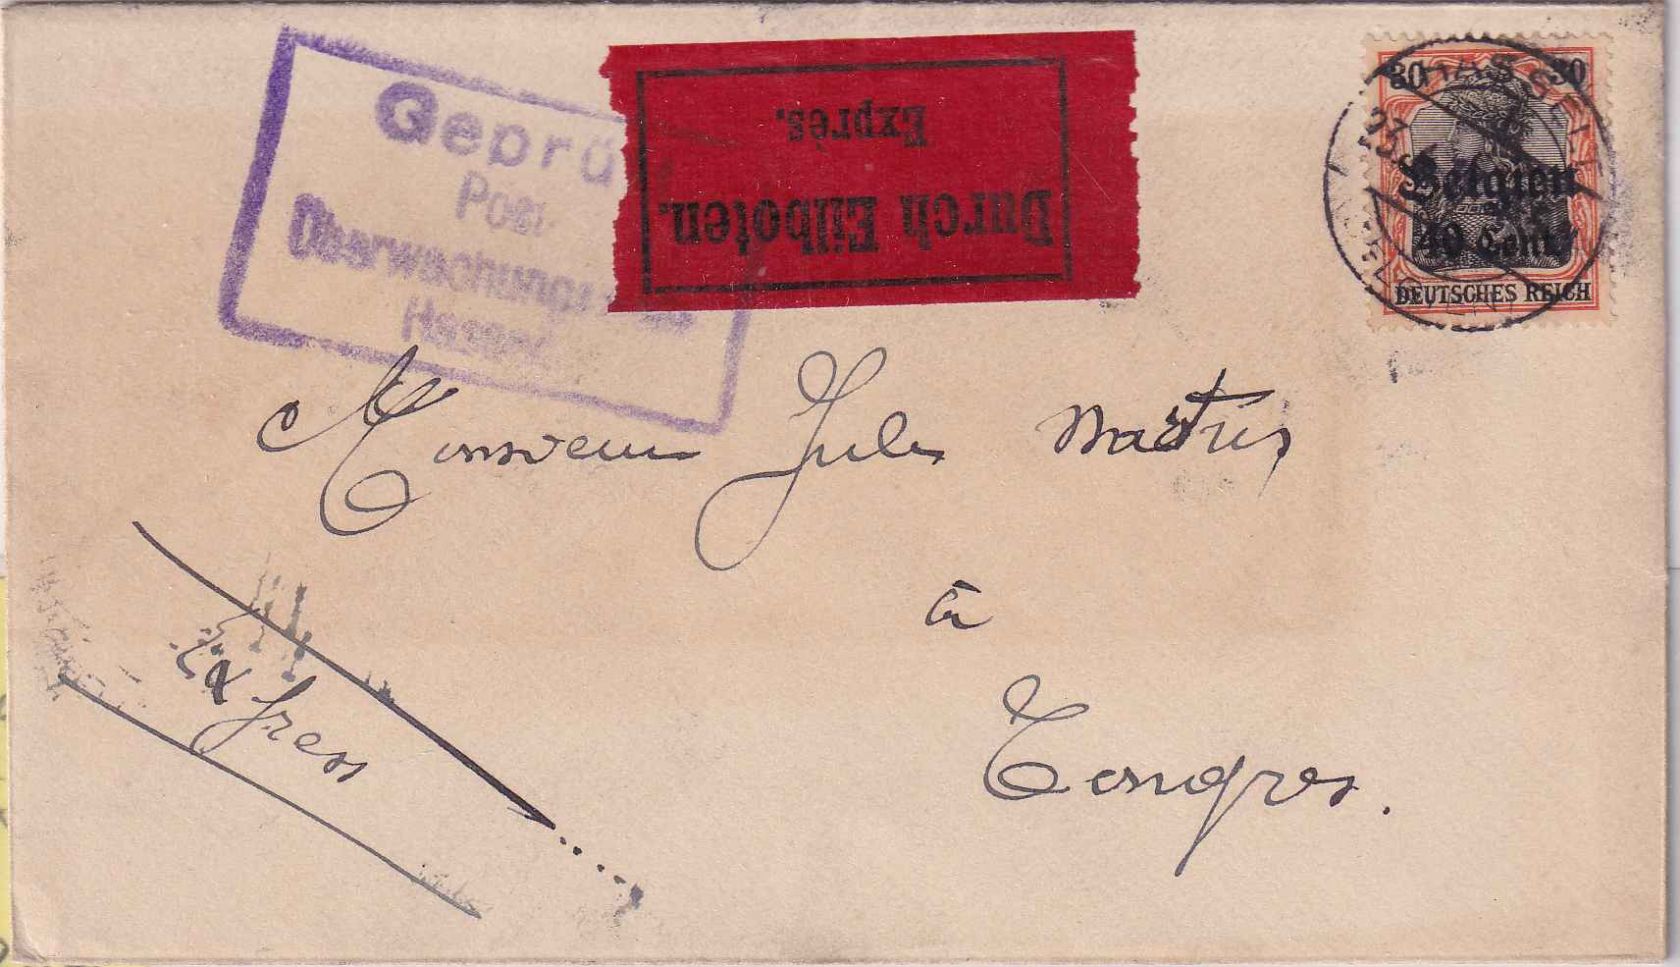 Geprü
Post
Überwachungs
Durch Eilboten.
Exprès.
30 30
Belgien
40 Cent.
DEUTSCHES REICH
HASSELT
Monsieur Jules
à
Tongres.
Express